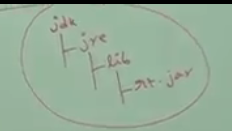 jdk
jre
lib
rt.jar